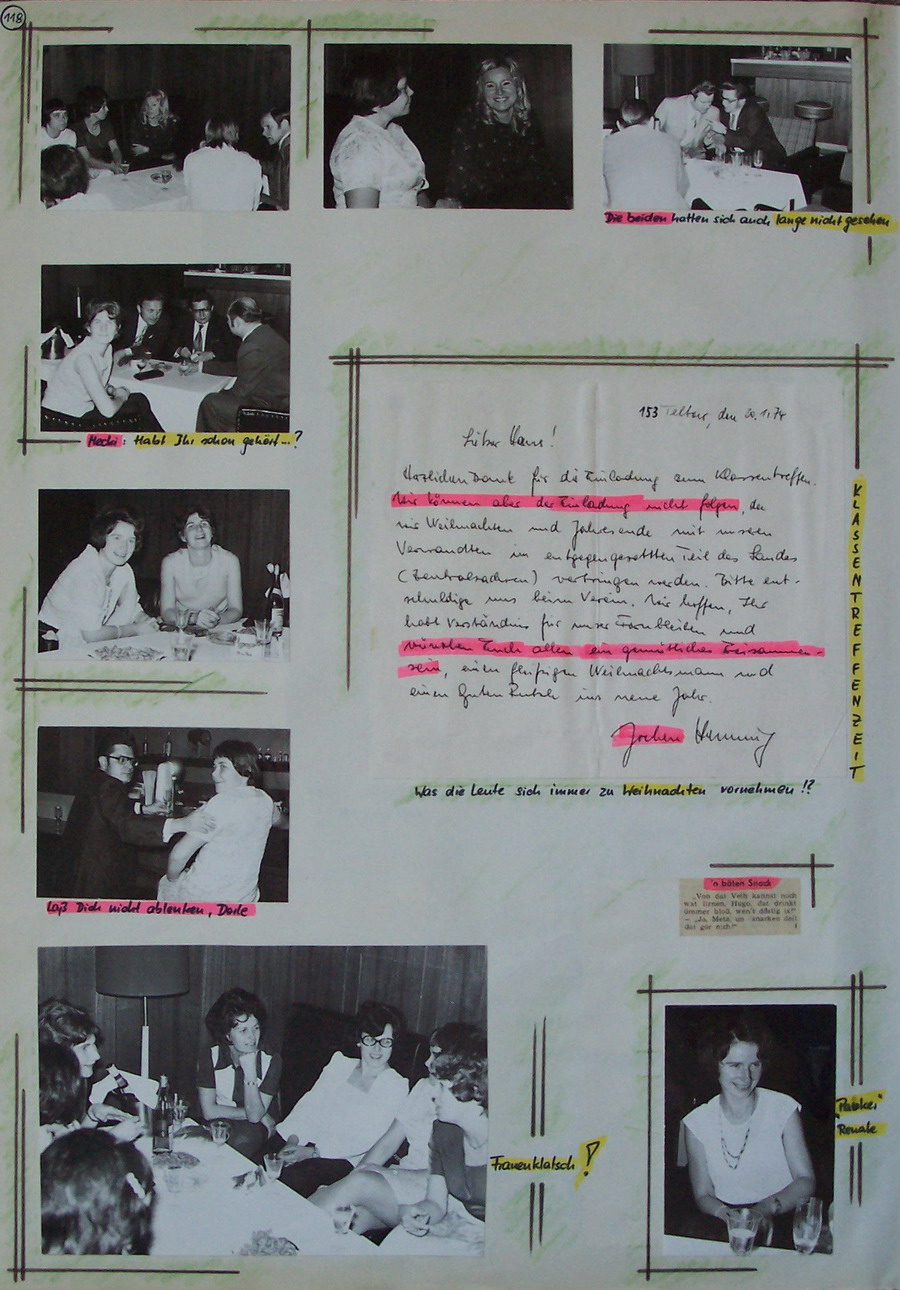 118
Die beiden hatten sich auch lange nicht gesehen
Hecki: Habt Ihr schon gehört...?
153 Teltow, den 20.11.74
Lieber Hans!
Herzlichen Dank für die Einladung zum Klassentreffen.
Wir können aber der Einladung nicht folgen, da
wir Weihnachten und Jahresende mit unseren
Verwandten im entgegengesetzten Teil des Landes
(Zentralsachsen) verbringen werden. Bitte ent-
schuldige uns beim Verein. Wir hoffen, Ihr
habt Verständnis für unser Fernbleiben und
wünschen Euch allen ein gemütliches Beisammen-
sein, einen fleißigen Weihnachtsmann und
einen Guten Rutsch ins neue Jahr.
Jochen
KLASSENTREFFENZEIT
Was die Leute sich immer zu Weihnachten vornehmen!?
Laß Dich nicht ablenken, Dorle
'n bäten Snack
„Von dat Veih kannst noch
wat lirnen, Hugo, dat drinkt
ümmer bloß, wen't döstig is!"
– „Ja, Meta, un snarken deit
dat gor nich!"
Frauenklatsch!
Renate